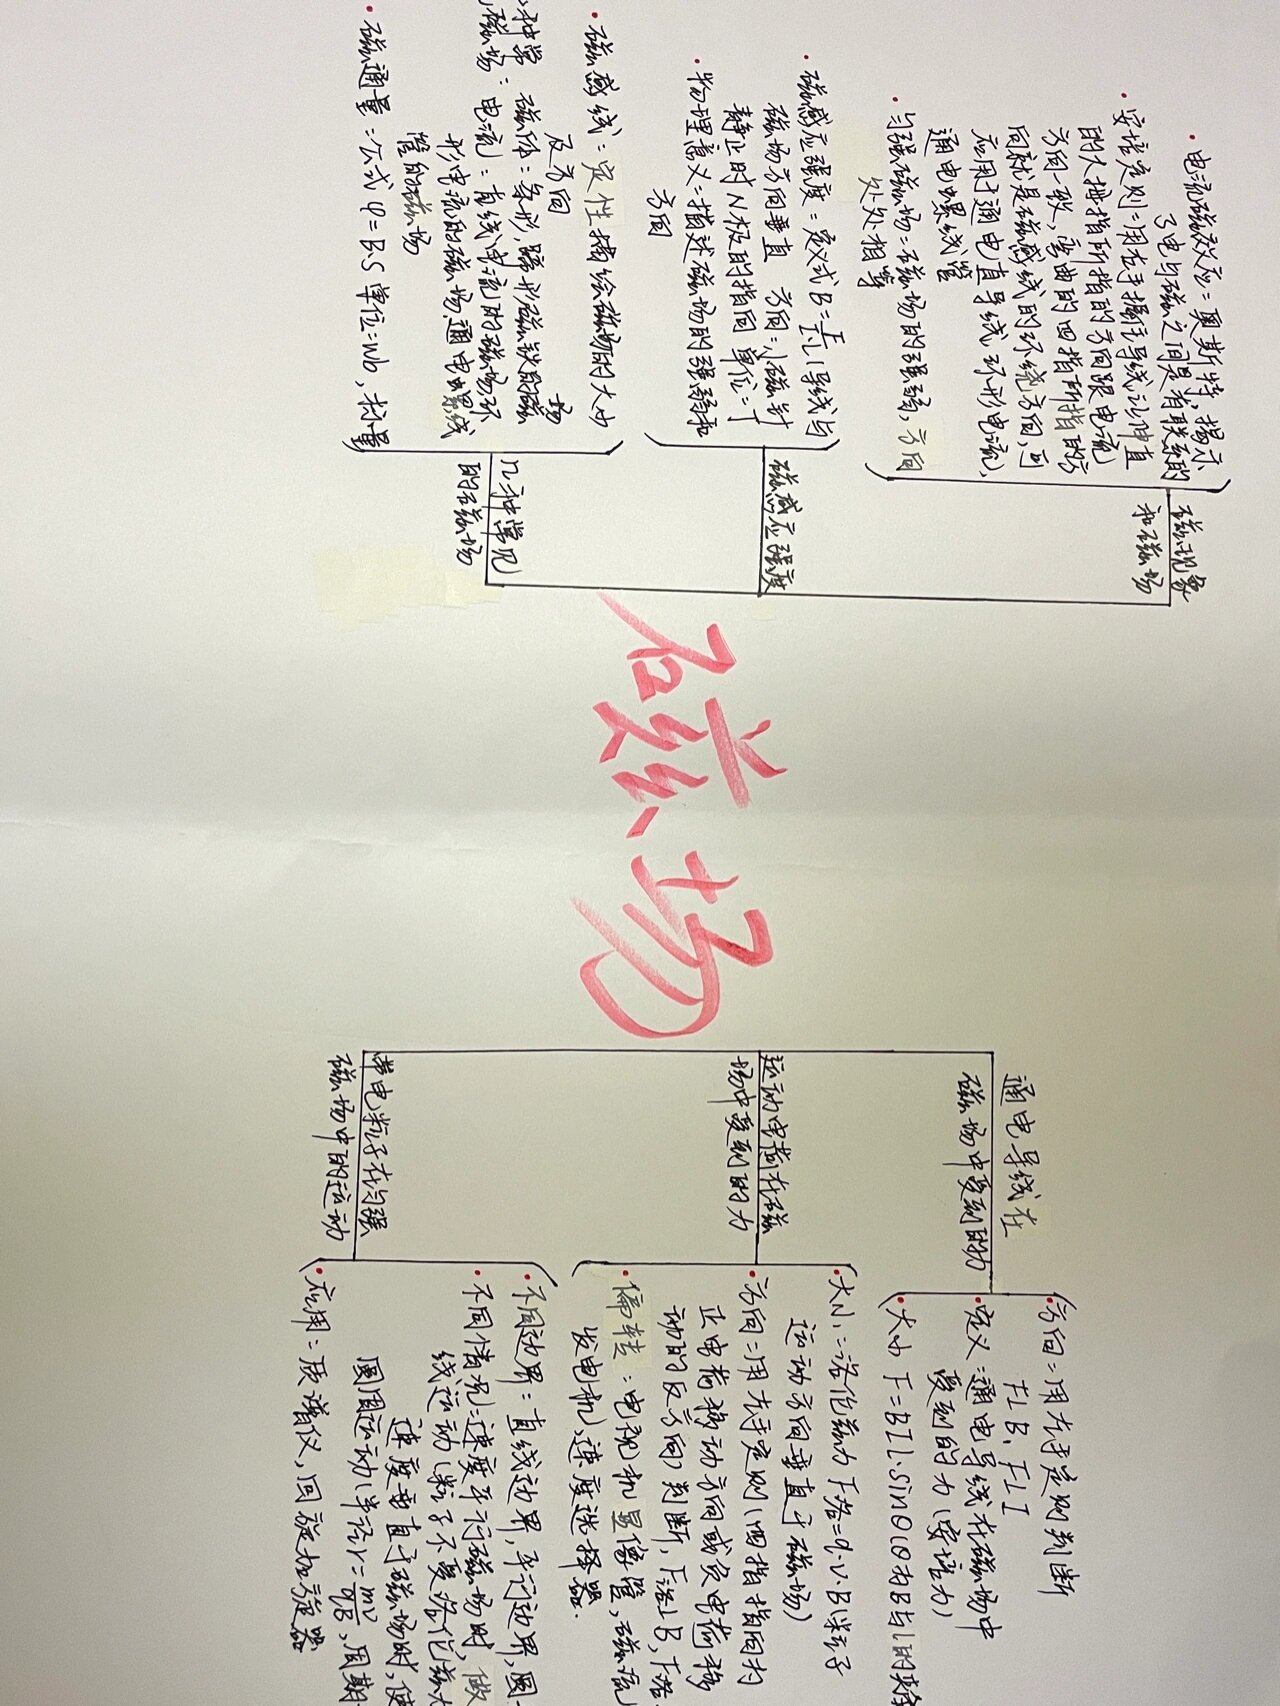 磁场
磁现象
和磁场
·电流磁效应：奥斯特, 揭示
了电与磁之间是有联系的
·安培定则：用右手握住导线, 让伸直
的大拇指所指的方向跟电流
方向一致, 弯曲的四指所指的方
向就是磁感线的环绕方向, 可
应用于通电直导线, 环形电流,
通电螺线管
·匀强磁场：磁场的强弱, 方向
处处相等
磁感应强度
·磁感应强度：定义式B=F/IL(导线与
磁场方向垂直 方向：小磁针
静止时N极的指向 单位：T
·物理意义：描述磁场的强弱和
方向
几种常见
的磁场
·磁感线：定性描绘磁场的大小
及方向
种常 磁体：条形, 蹄形磁铁的磁
场
磁场：电流：直线电流的磁场, 环
形电流的磁场, 通电螺线
管的磁场
·磁通量：公式φ=B·S 单位：Wb, 标量
通电导线在
磁场中受到的力
·方向：用左手定则判断
F⊥B, F⊥I
·定义：通电导线在磁场中
受到的力(安培力)
·大小 F=BIL·sinθ(θ为B与I的
运动电荷在磁
场中受到的力
·大小：洛伦兹力F洛=q·v·B(粒子
运动方向垂直于磁场)
·方向：用左手定则(四指指向为
正电荷移动方向或负电荷移
动的反方向)判断, F洛⊥B, F洛
·偏转：电视机显像管, 磁流
发电机, 速度选择器.
带电粒子在匀强
磁场中的运动
·不同边界：直线边界, 平行边界, 圆
·不同情况：速度平行磁场时, 做
线运动(粒子不受洛伦兹力
速度垂直于磁场时, 使
圆周运动(半径r=mv/qB, 周期
·应用：质谱仪, 回旋加速器